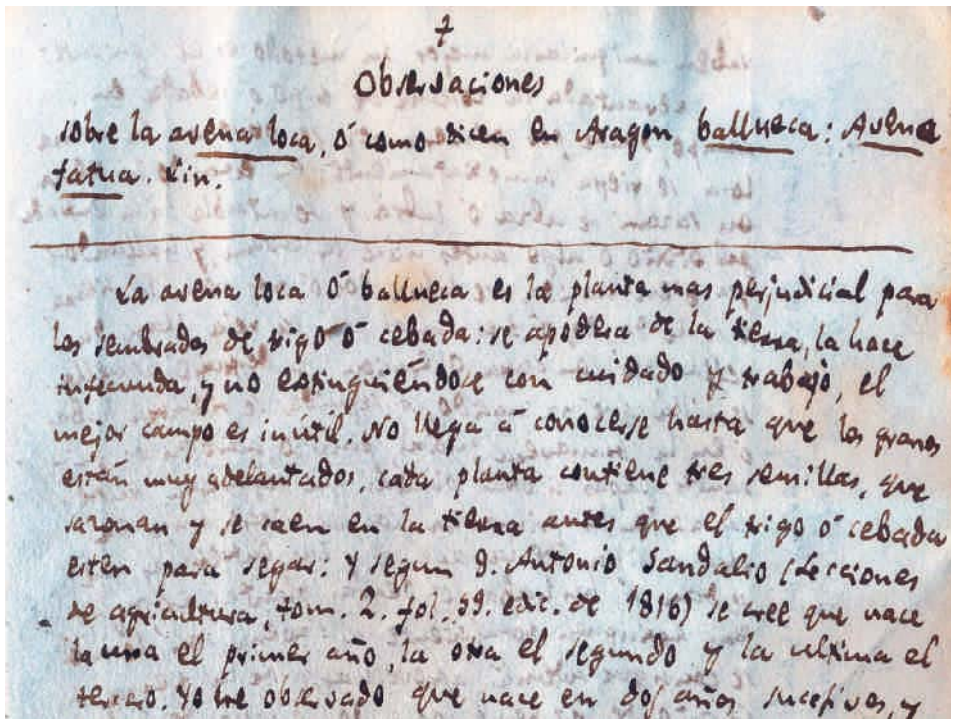 7
Observaciones
sobre la avena loca, ó como dicen en Aragon ballueca: Avena
fatua. Lin.
La avena loca ó ballueca es la planta mas perjudicial para
los sembrados de trigo ó cebada: se apodera de la tierra, la hace
infecunda, y no estinguiéndose con cuidado y trabajo, el
mejor campo es inútil. No llega á conocerse hasta que los granos
están muy adelantados, cada planta contiene tres semillas, que
sazonan y se caen en la tierra antes que el trigo ó cebada
esten para segar: Y segun D. Antonio Sandalio (Lecciones
de agricultura, tom. 2. fol. 59. edic. de 1816) se cree que nace
la una el primer año, la otra el segundo y la ultima el
tercero. Yo he observado que nace en dos años sucesivos, y